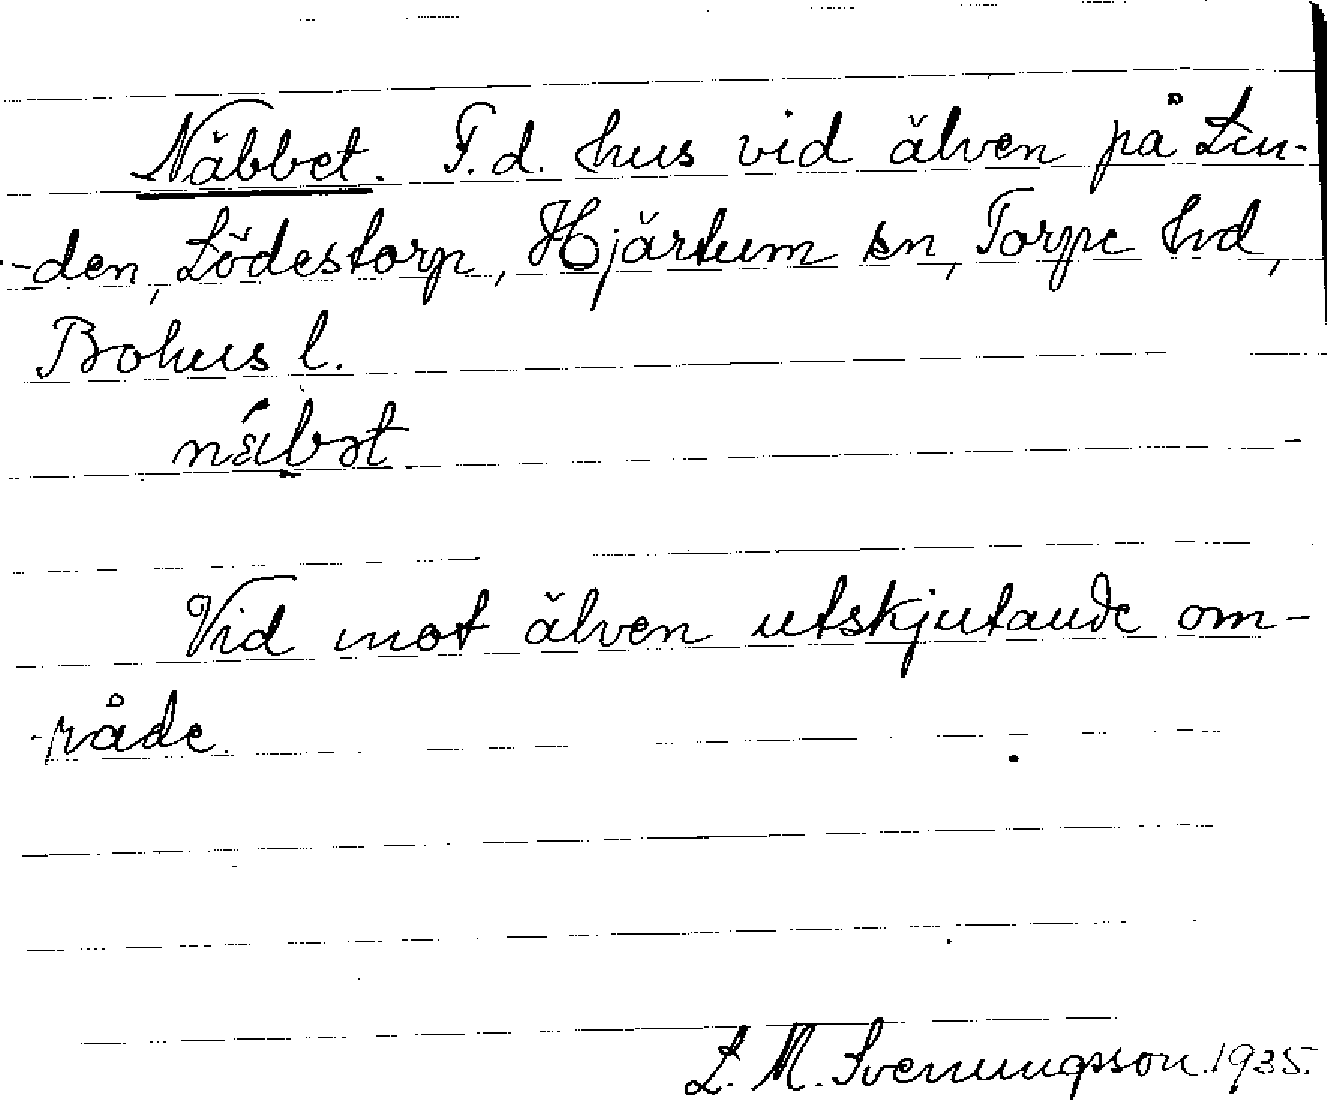 Näbbet. F. d. hus vid älven på Lin-
-den, Lödestorp, Hjärtum sn, Torpe hd,
Bohus l.
näbət
Vid mot älven utskjutande om-
-råde.
L. M. Svenungsson. 1935.